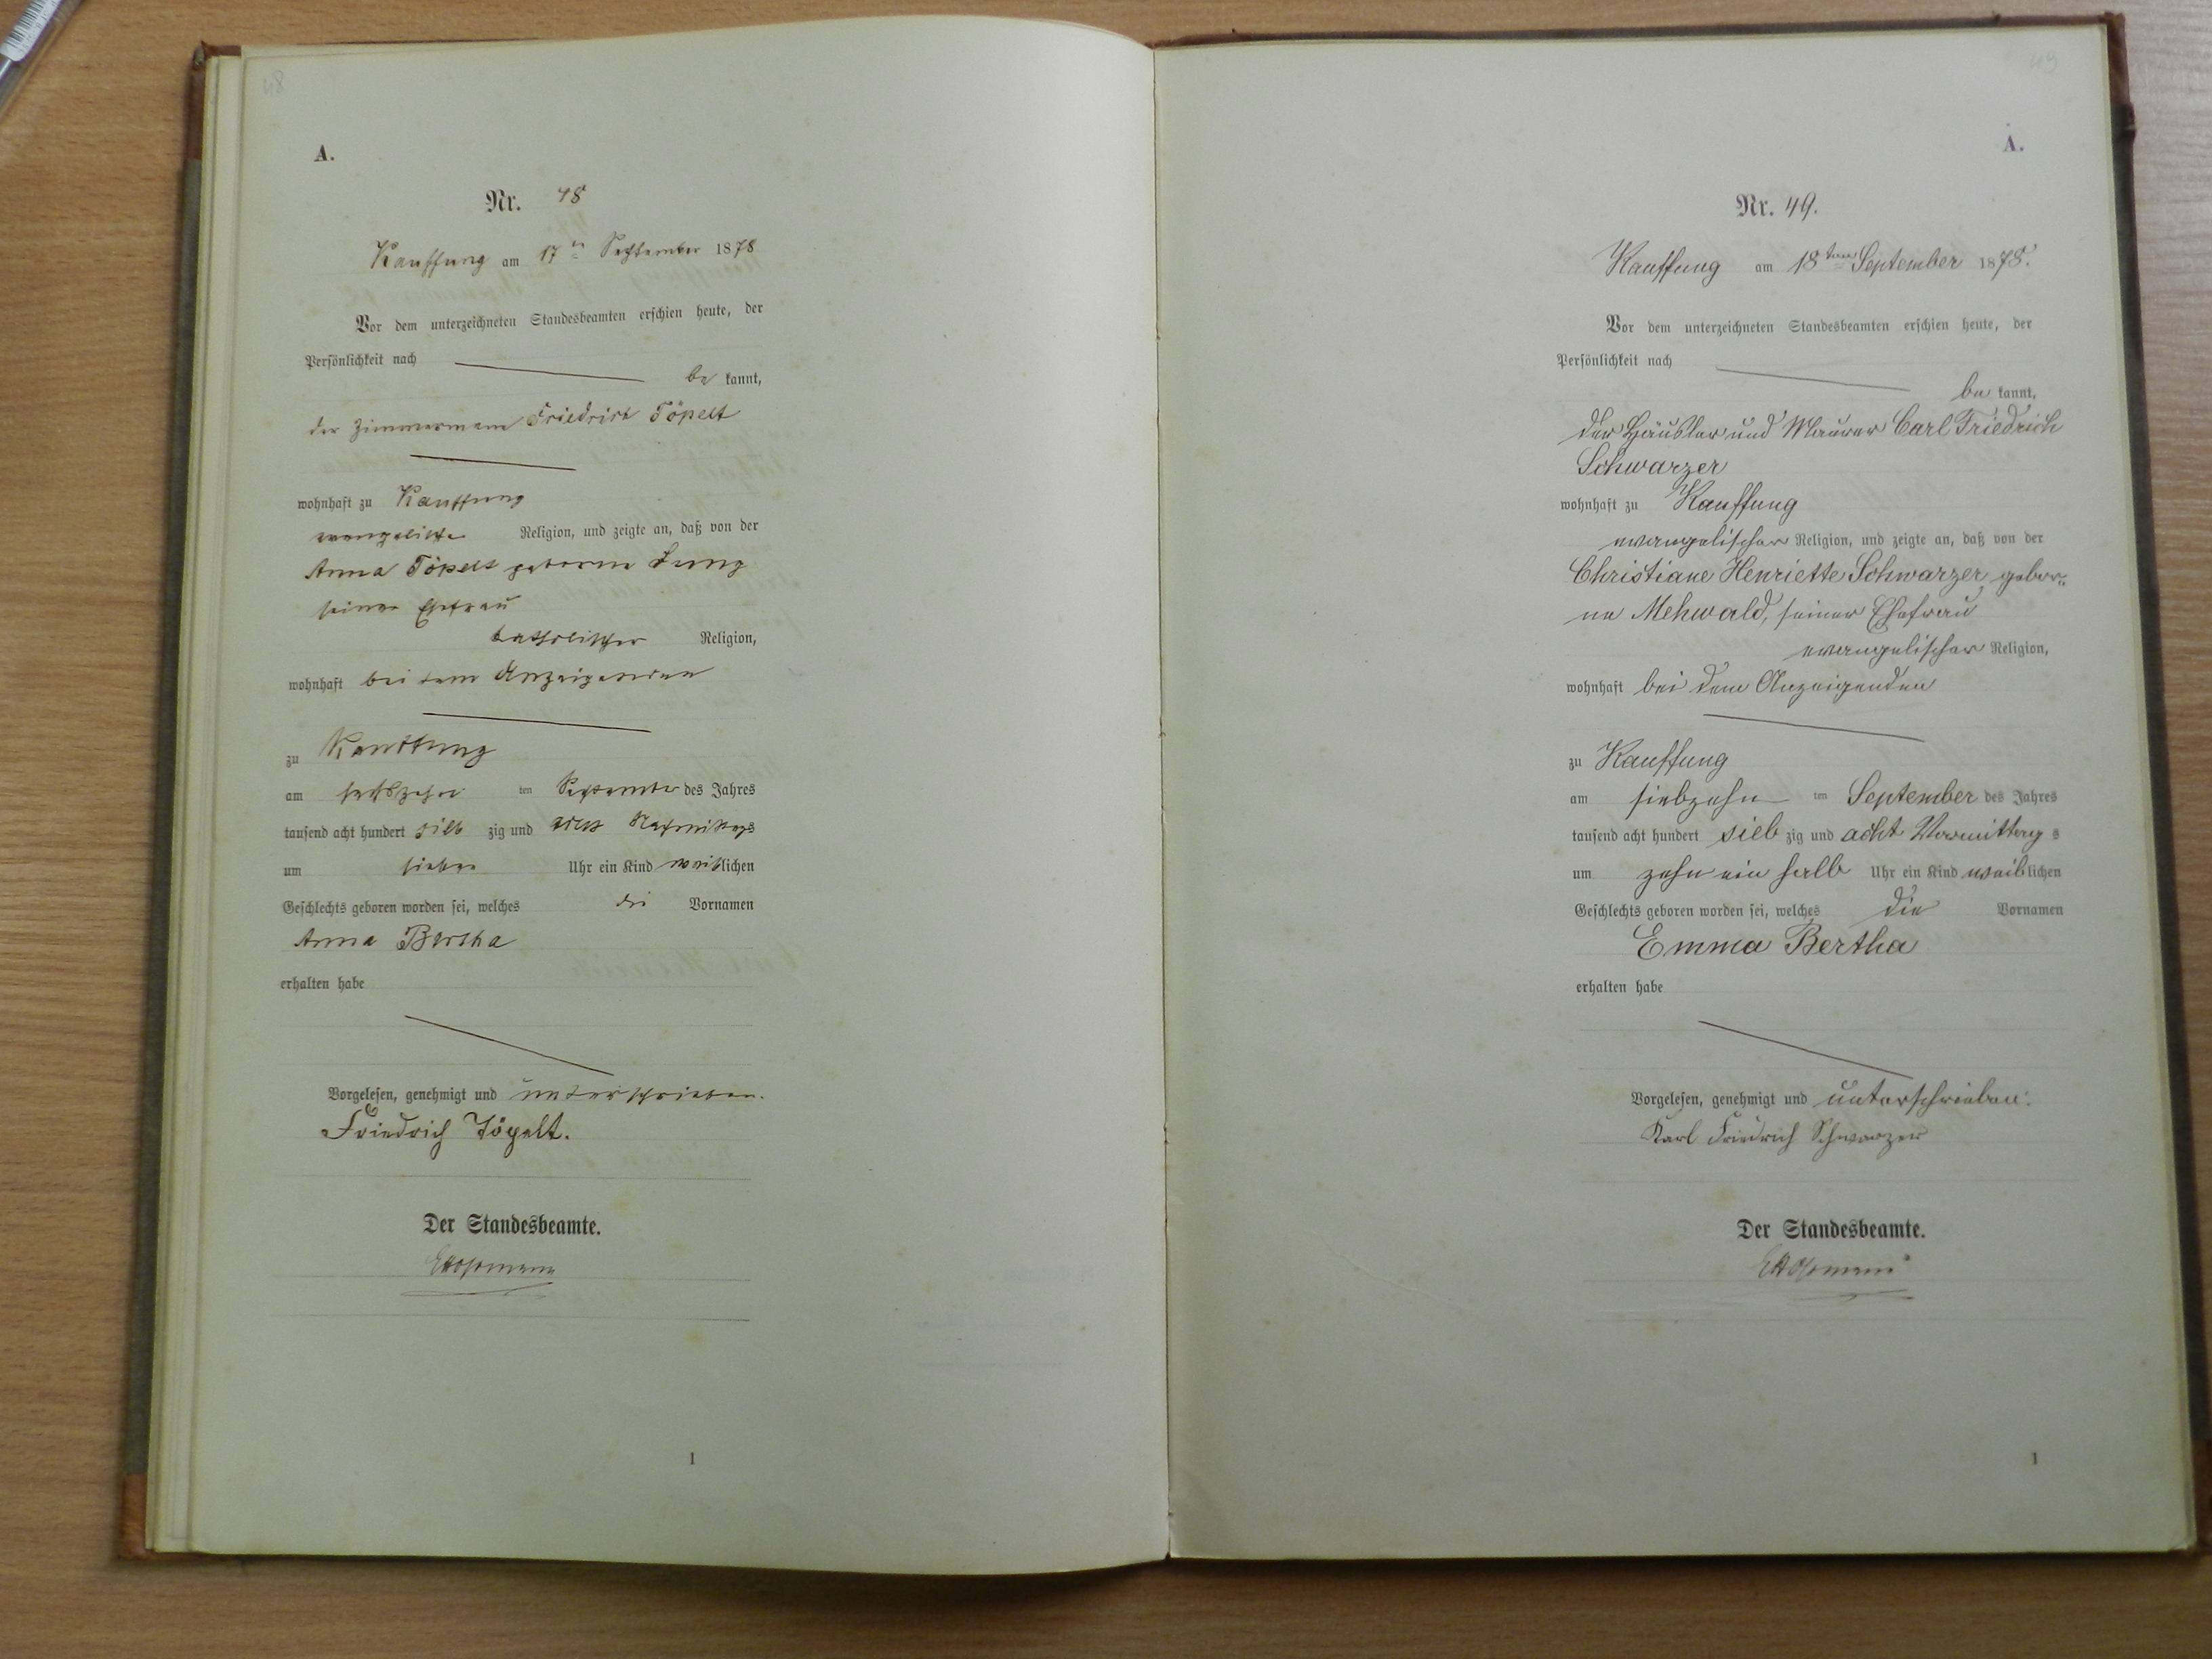 48
A.
Nr. 48
Kauffung am 17ten September 1878
Vor dem unterzeichneten Standesbeamten erschien heute, der
Persönlichkeit nach
be kannt,
der Zimmermann Friedrich Töpelt
wohnhaft zu Kauffung
evangelischer Religion, und zeigte an, daß von der
Anna Töpelt geborne Jung
seiner Ehefrau
katholischer Religion,
wohnhaft bei dem Anzeigenden
zu Kauffung
am sechszehn ten September des Jahres
tausend acht hundert sieb zig und acht Nachmittags
um sieben Uhr ein Kind weiblichen
Geschlechts geboren worden sei, welches die Vornamen
Anna Bertha
erhalten habe
Vorgelesen, genehmigt und unterschrieben.
Friedrich Töpelt.
Der Standesbeamte.
1
49
A.
Nr. 49.
Kauffung am 18ten September 1878.
Vor dem unterzeichneten Standesbeamten erschien heute, der
Persönlichkeit nach
be kannt,
der Häusler und Maurer Carl Friedrich
Schwarzer
wohnhaft zu Kauffung
evangelischer Religion, und zeigte an, daß von der
Christiane Henriette Schwarzer gebor-
ne Mehwald, seiner Ehefrau
evangelischer Religion,
wohnhaft bei dem Anzeigenden
zu Kauffung
am siebzehn ten September des Jahres
tausend acht hundert sieb zig und acht Vormittag s
um zehn ein halb Uhr ein Kind weiblichen
Geschlechts geboren worden sei, welches die Vornamen
Emma Bertha
erhalten habe
Vorgelesen, genehmigt und unterschrieben.
Karl Friedrich Schwarzer
Der Standesbeamte.
1